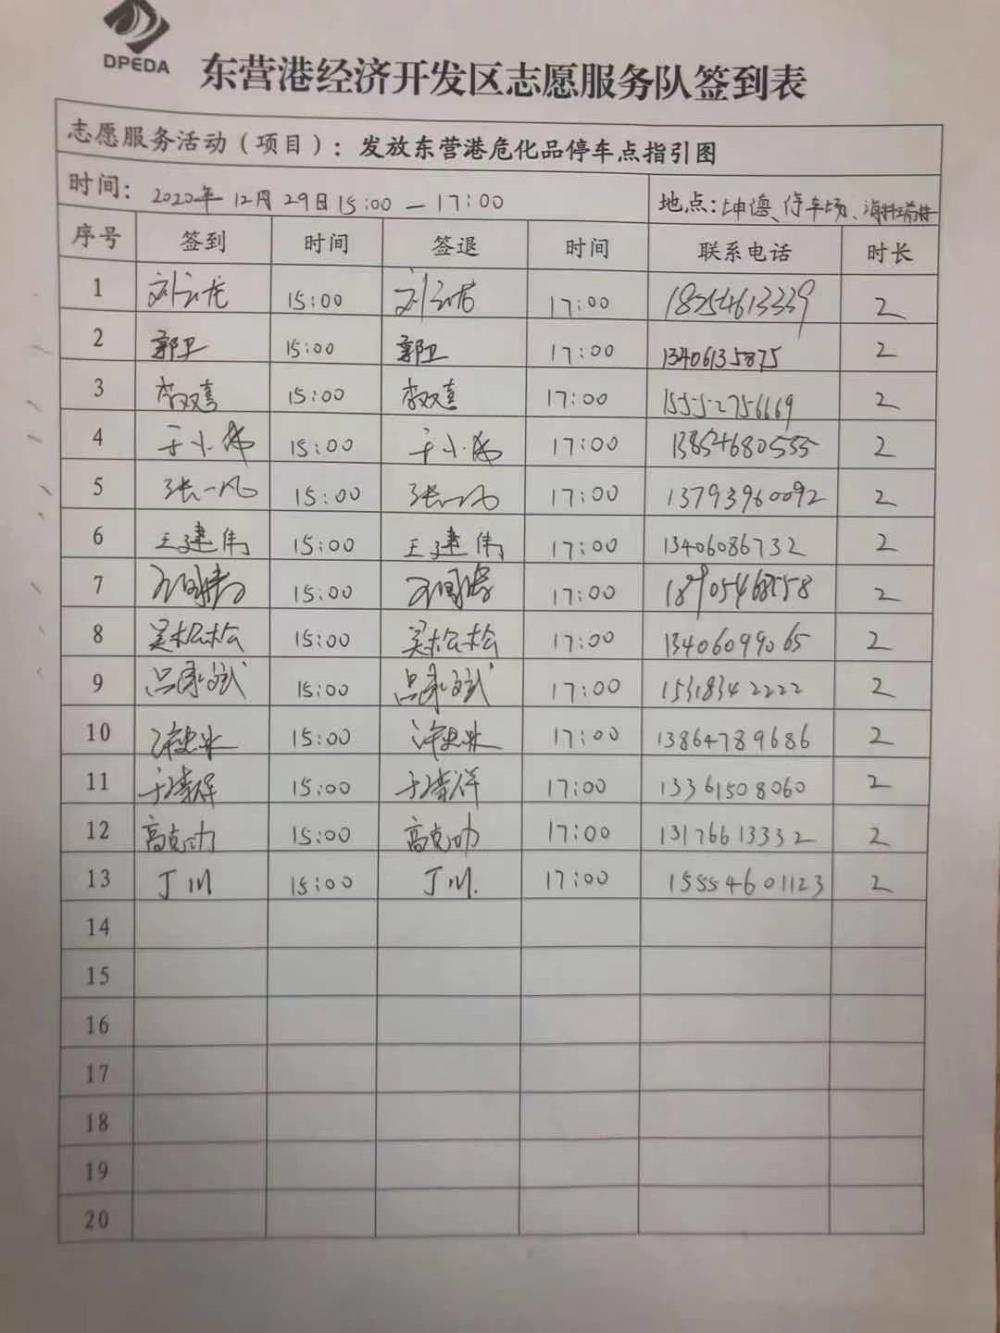 DPEDA
东营港经济开发区志愿服务队签到表
志愿服务活动（项目）：发放东营港危化品停车点指引图
时间：2020年12月29日15:00—17:00 地点：坤德、停车场、海科瑞林
序号 签到 时间 签退 时间 联系电话 时长
1 15:00 17:00 18254613339 2
2 郭卫 15:00 郭卫 17:00 13406135875 2
3 李双喜 15:00 李双喜 17:00 15552756669 2
4 于小 15:00 于小 17:00 13854680555 2
5 张一凡 15:00 张一凡 17:00 13793960092 2
6 王建伟 15:00 王建伟 17:00 13406086732 2
7 15:00 17:00 2
8 吴松松 15:00 吴松松 17:00 13406099065 2
9 吕 斌 15:00 吕 斌 17:00 15318342222 2
10 15:00 17:00 13864789686 2
11 于 15:00 于 17:00 13361508060 2
12 高克功 15:00 高克功 17:00 13176613332 2
13 丁川 15:00 丁川. 17:00 15554601123 2
14
15
16
17
18
19
20